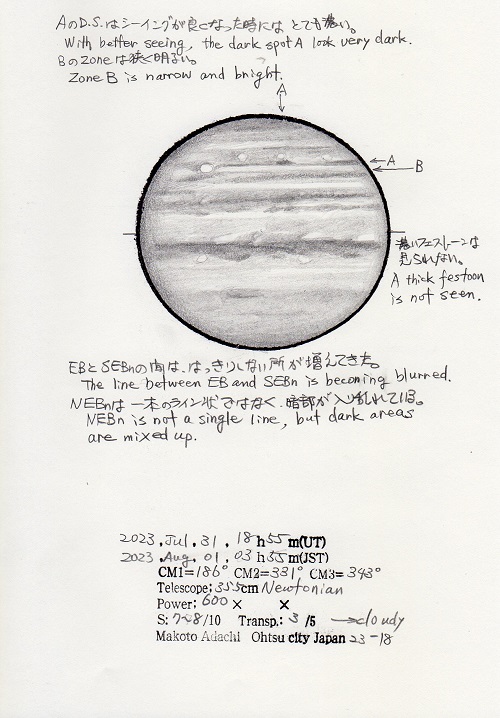 AのD.S.はシーイングが良くなった時にはとても濃い。
With better seeing, the dark spot A look very dark.
BのZoneは狭く明るい。
Zone B is narrow and bright.
A
A
B
濃いフェストーンは
見られない。
A thick festoon
is not seen.
EBとSEBnの間は、はっきりしない所が増えてきた。
The line between EB and SEBn is becoming blurred.
NEBnは一本のライン状ではなく、暗部が入り乱れている。
NEBn is not a single line, but dark areas
are mixed up.
2023.Jul.31.18h55m(UT)
2023.Aug.01.03h55m(JST)
CM1=186° CM2=331° CM3=343°
Telescope; 355cm Newtonian
Power; 600× ×
S: 7~8/10 Transp.: 3/5 →cloudy
Makoto Adachi Ohtsu city Japan 23-18